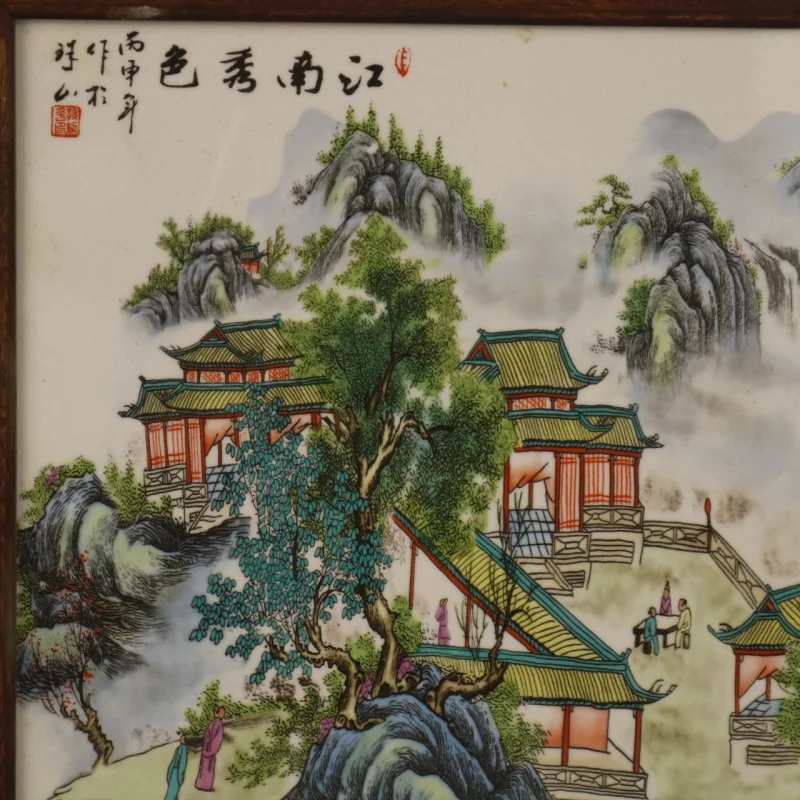 江南秀色
丙申年
作於
珠山